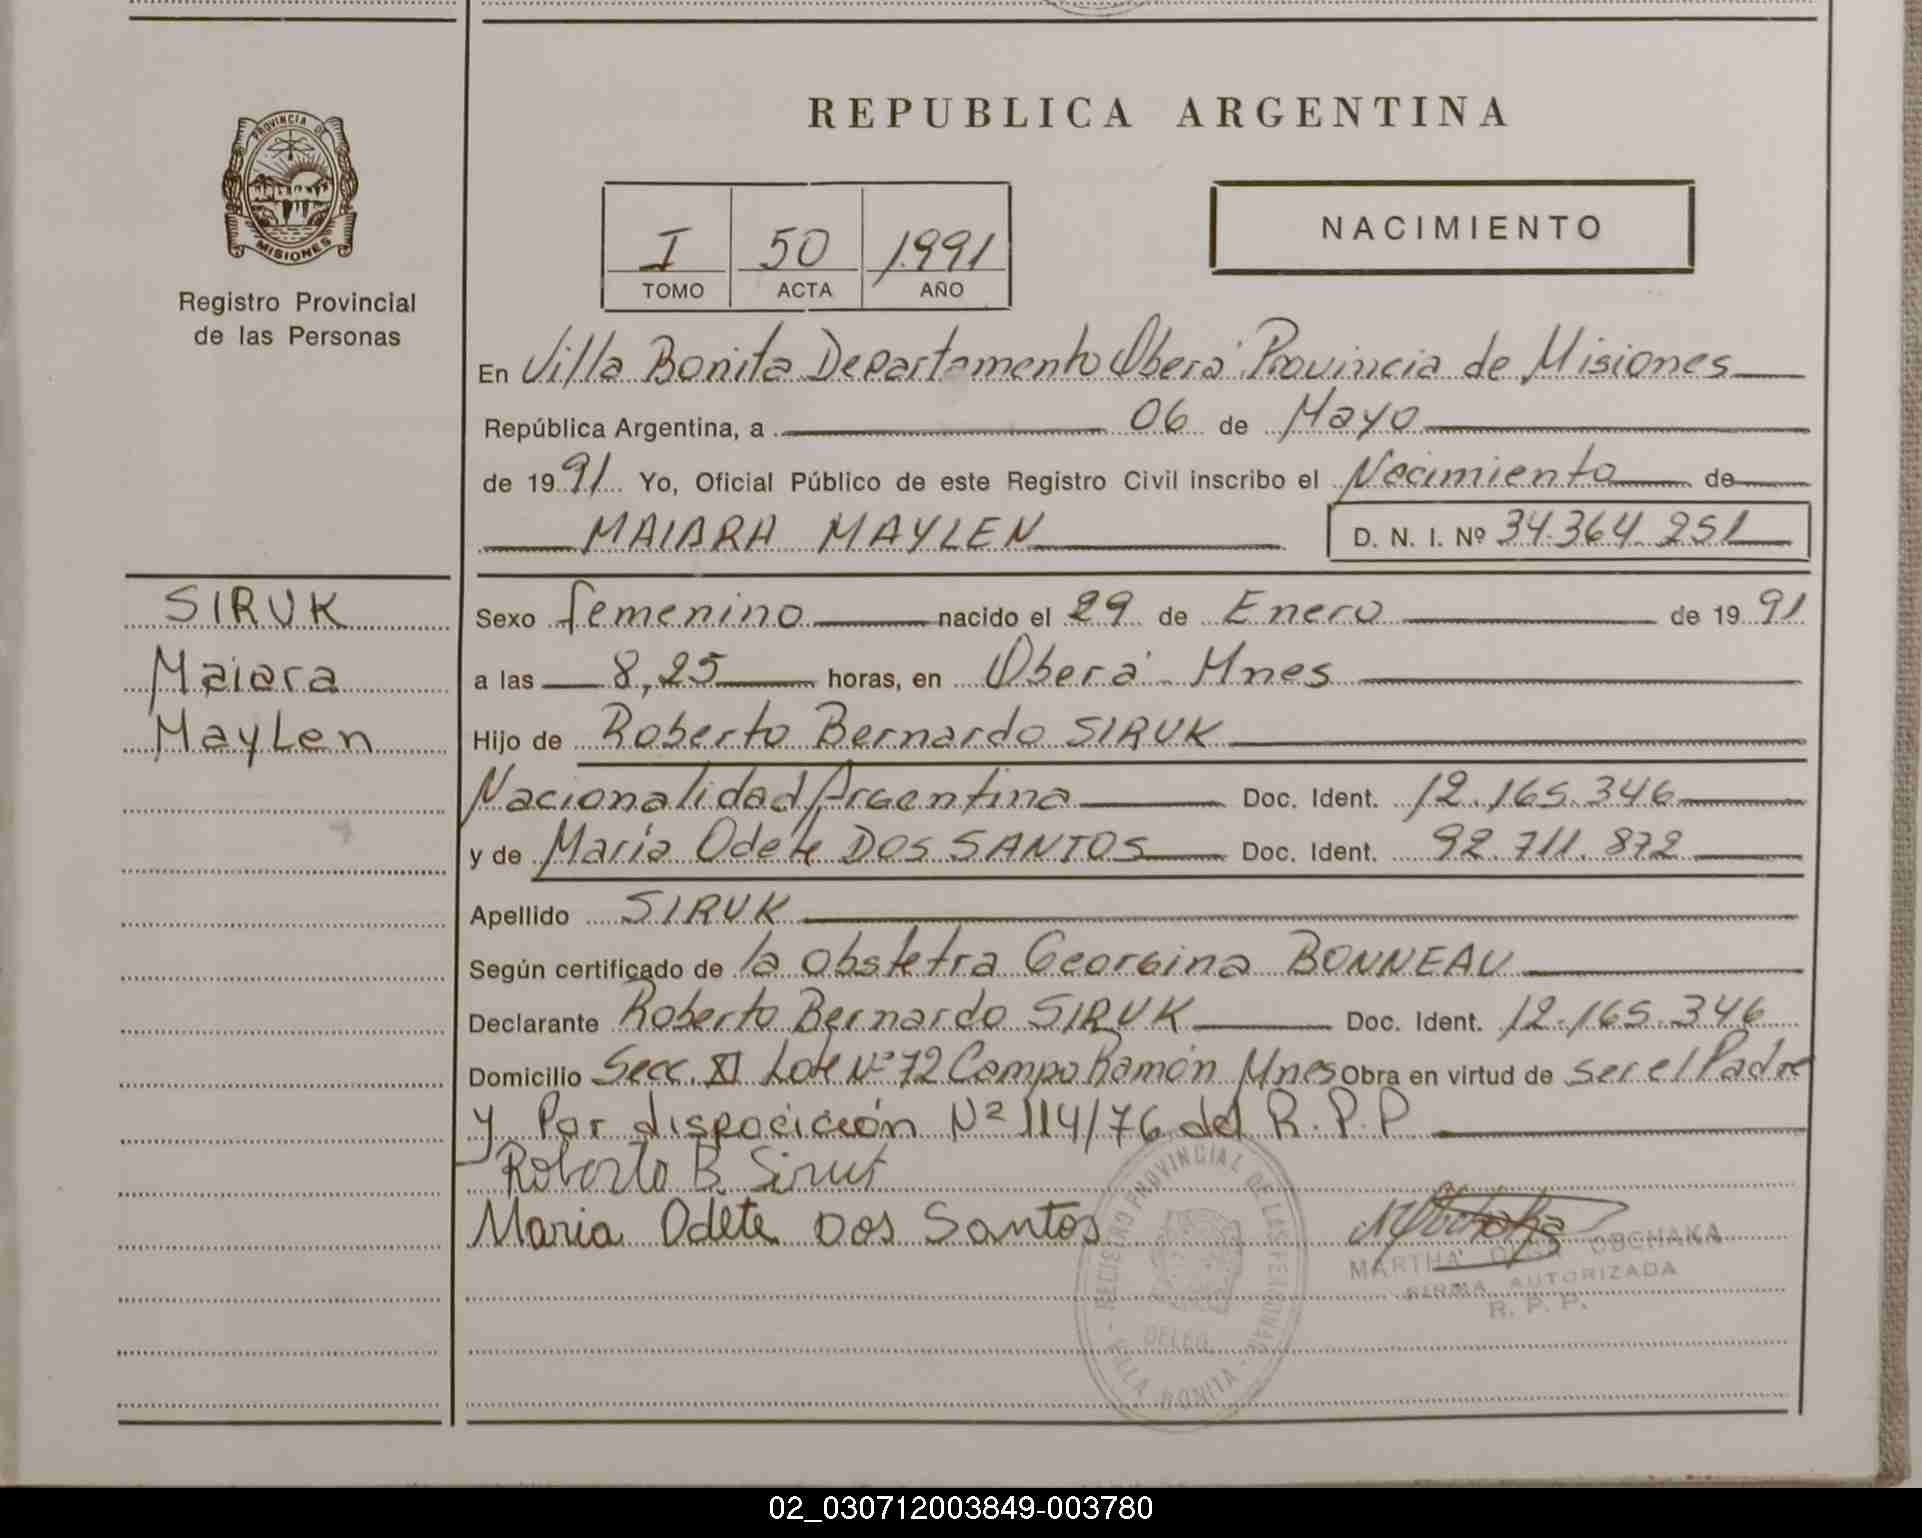 REPUBLICA ARGENTINA
PROVINCIA DE
MISIONES
Registro Provincial
de las Personas
I 50 1991
TOMO ACTA AÑO
NACIMIENTO
En Villa Bonita Departamento Oberá Provincia de Misiones
República Argentina, a 06 de Mayo
de 1991 Yo, Oficial Público de este Registro Civil inscribo el Nacimiento de
MAIARA MAYLEN D. N. I. Nº 34.364.251
SIRUK
Maiara
MayLen
Sexo femenino nacido el 29 de Enero de 1991
a las 8,25 horas, en Oberá Mnes
Hijo de Roberto Bernardo SIRUK
Nacionalidad Argentina Doc. Ident. 12.165.346
y de María Odete DOS SANTOS Doc. Ident. 92.711.872
Apellido SIRUK
Según certificado de la obstetra Georgina BONNEAU
Declarante Roberto Bernardo SIRUK Doc. Ident. 12.165.346
Domicilio Secc. XI Lote Nº 72 Campo Ramón Mnes Obra en virtud de ser el Padre
y Por disposición Nº 114/76 del R.P.P
Roberto B. Siruk
Maria Odete Dos Santos
REGISTRO PROVINCIAL DE LAS PERSONAS
DELEG.
VILLA BONITA
MARTHA OLGA OBCHAKA
FIRMA AUTORIZADA
R. P. P.
02_030712003849-003780